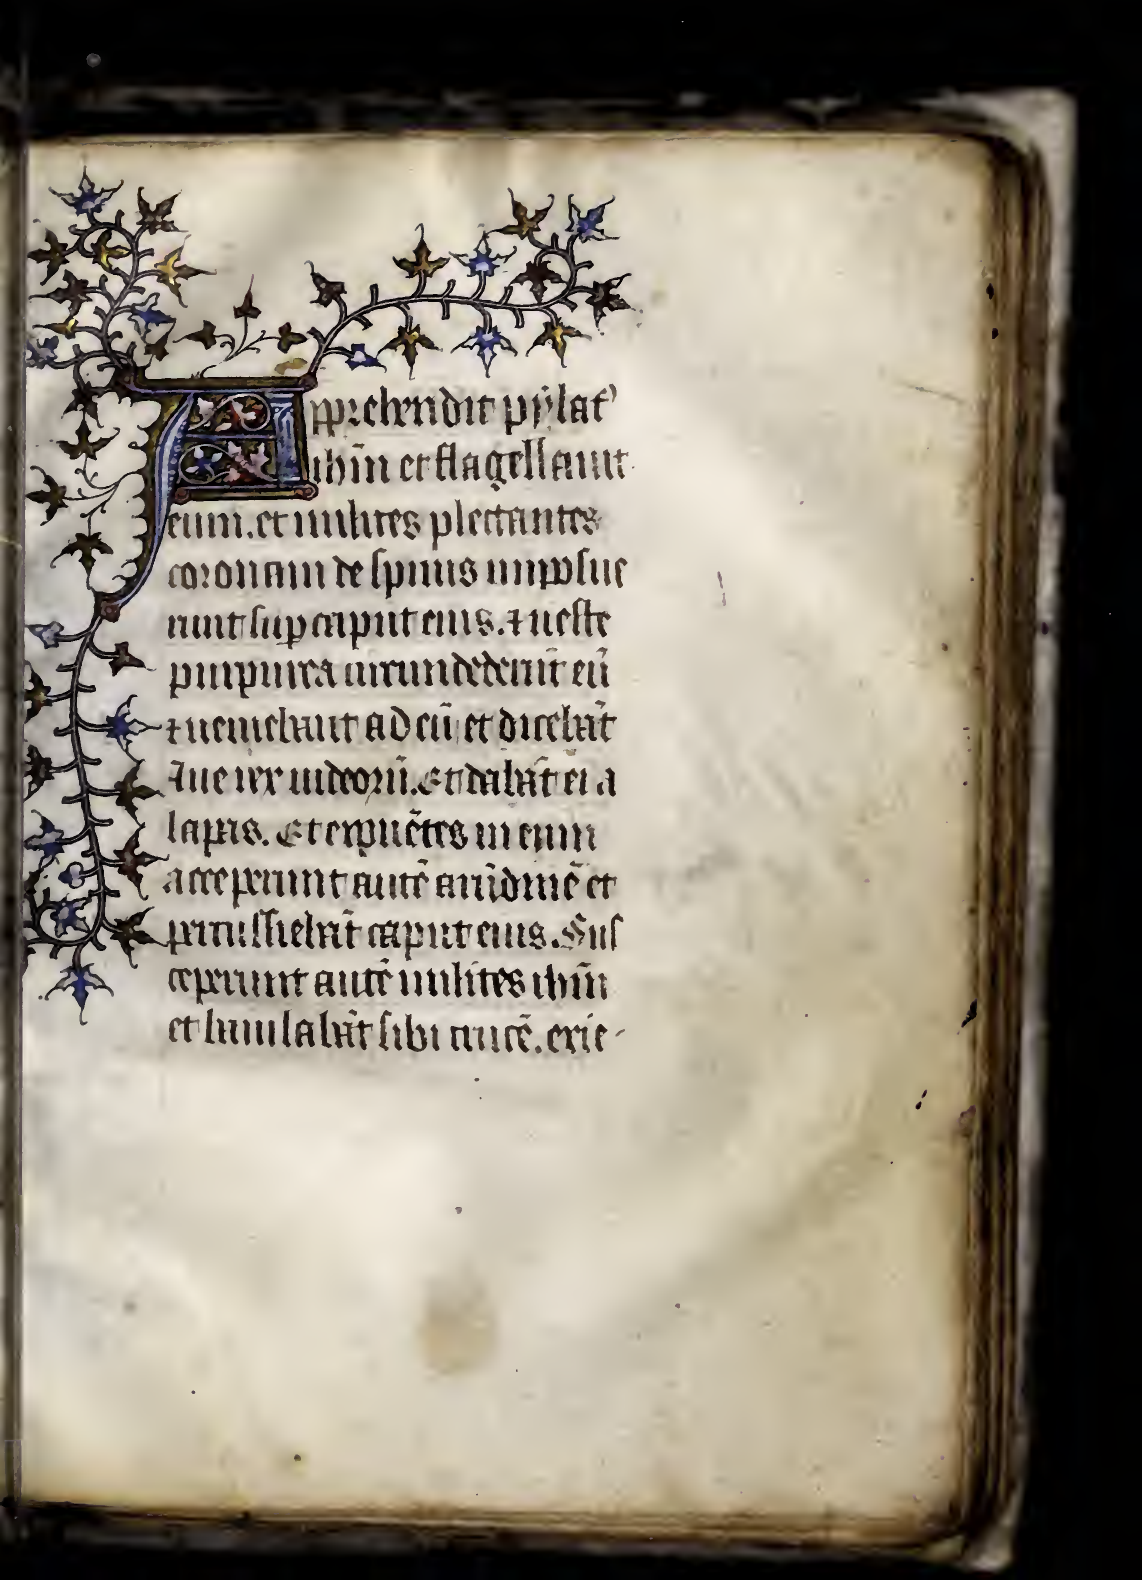 Apprehendit pylatꝰ
ihm̄ et flagellauit
eum. et milites plectantes
coronam de spinis imposue
runt sup caput eius. ⁊ ueste
purpurea circundederūt eū
⁊ ueniebant ad eū et dicebāt
Aue rex iudeorū. Et dabāt ei a
lapas. Et expuētes in eum
acceperunt autē arūdinē et
percussiebāt caput eius. Sus
ceperunt autē milites ihm̄
et baiulabāt sibi crucē. exie-